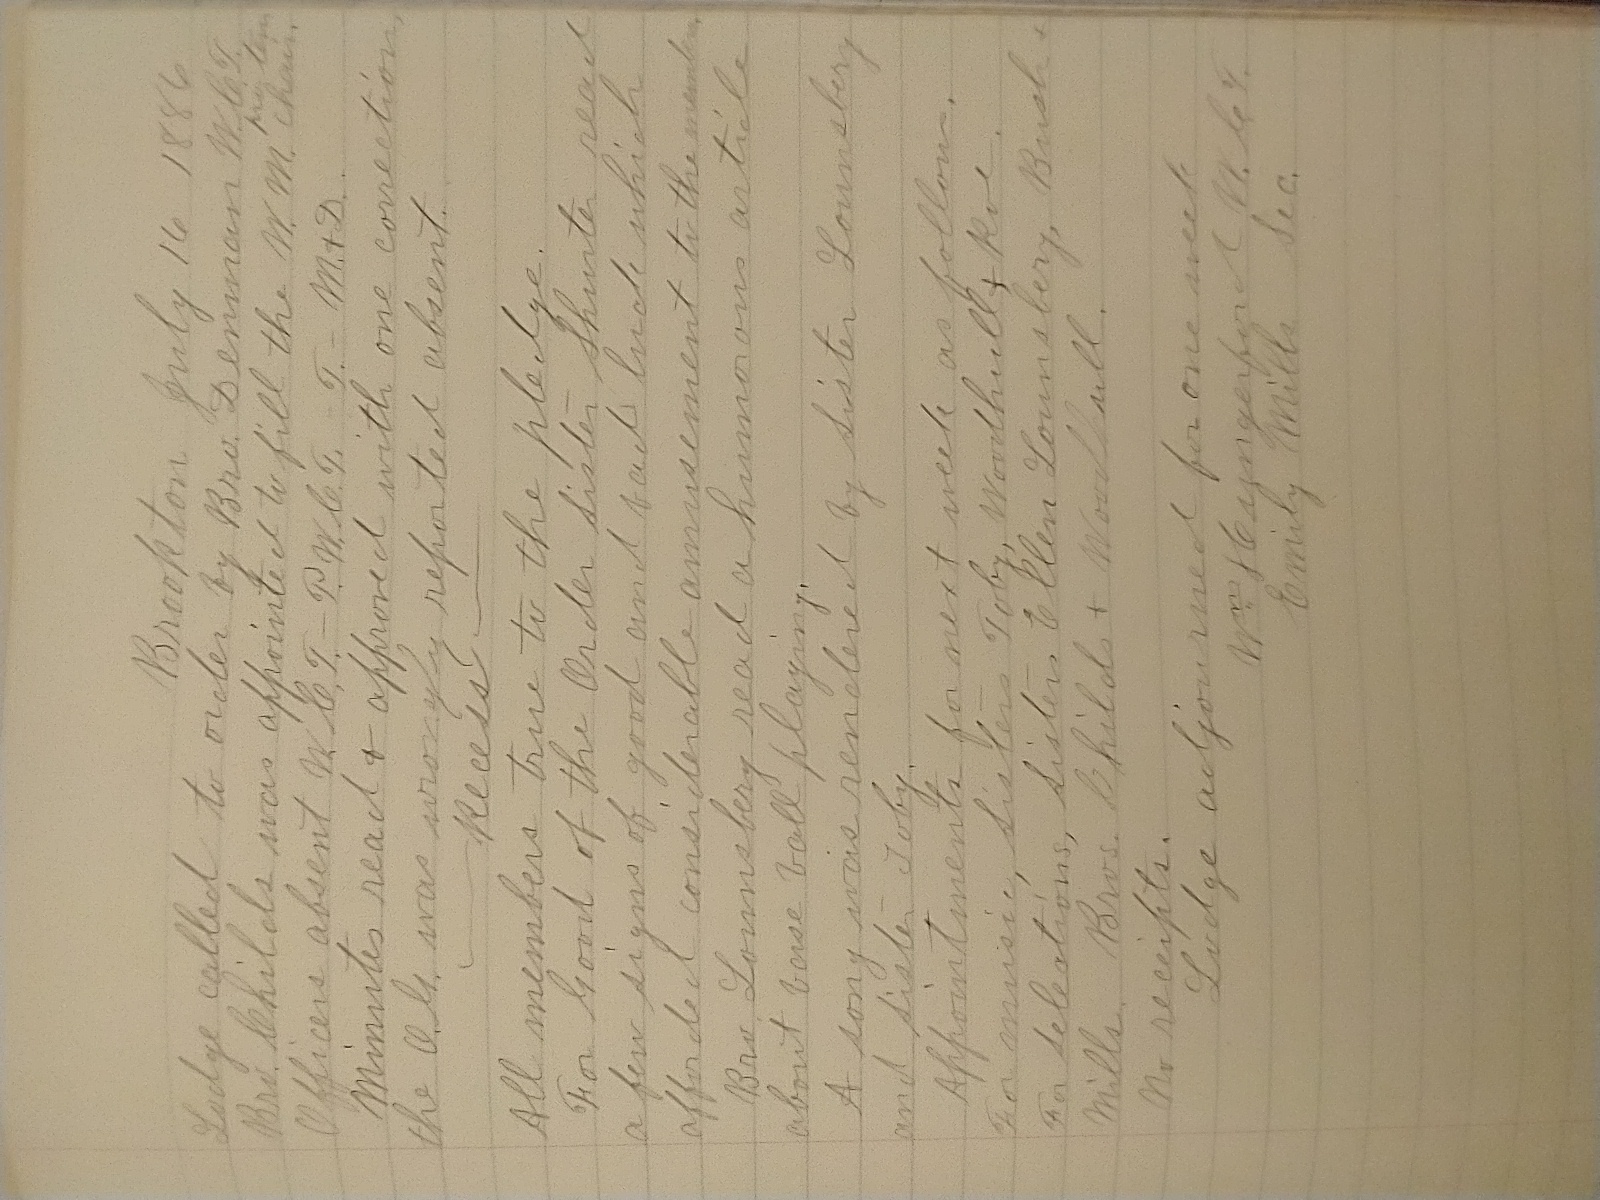 Brookton July 16 1886
Lodge called to order by Bro. Denmman W.C.T.
pro tem
Bro. Childs was appointed to fill the W. M. chair.
Officers absent W.C.T.- P.W.C.T. - T. - M.+D.
Minutes read & approved with one correction,
the O.G. was wrongly reported absent.
Recess
All members true to the pledge.
For Good of the Order sister Shurter read
a few signs of good and bad luck which
afforded considerable amusement to the members.
Bro. Lounsbery read a humorous article
about base ball playing.
A song was rendered by sister Lounsbery
and sister Toby.
Appointments for next week as follows.
For music, sisters Toby, Woodhull & Roe.
For selections, sisters Ellen Lounsbery, Bush &
Mills. Bros. Childs & Woodhull.
No receipts.
Lodge adjourned for one week
Wm Hungerford W.C.T.
Emily Mills Sec.